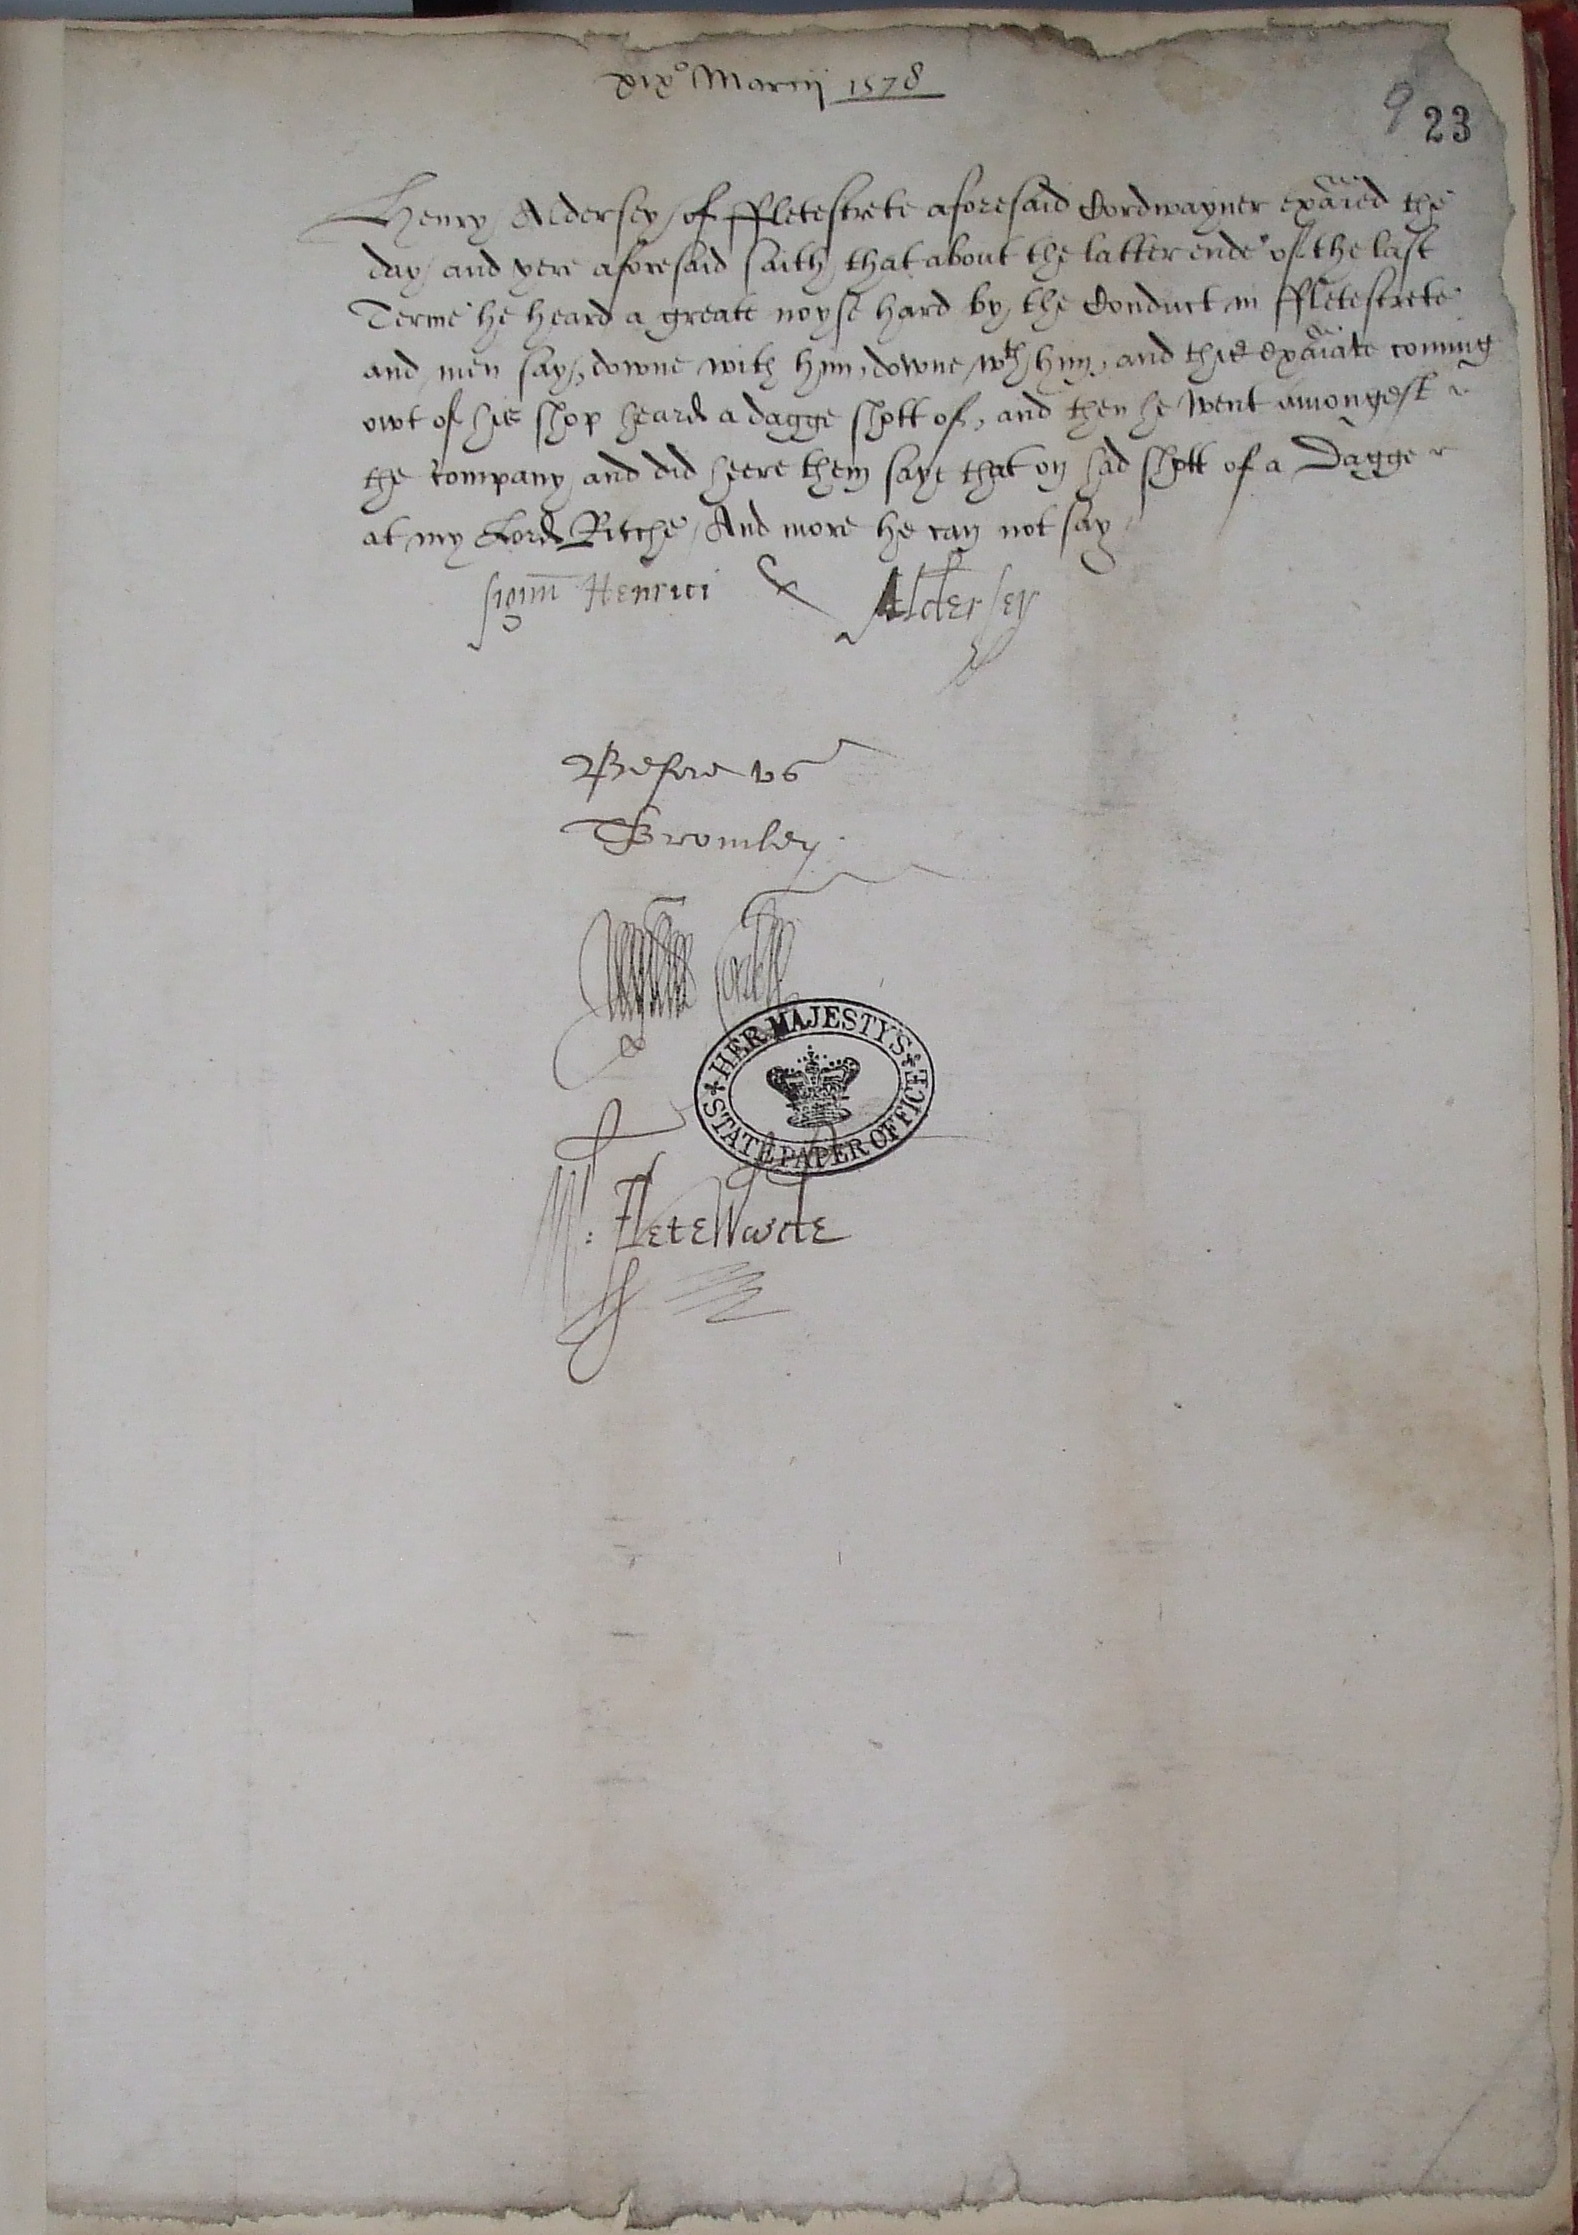 xixo Marcij 1578
9 23
Henry Aldersey of ffletestrete aforesaid Cordwayner exaied the
day and yere aforesaid saith that about the latter ende of the last
Terme he heard a greate noyse hard by the Conduct in ffletestrete
and men say, downe with him, downe wth him, and this exaiate coming
owt of his shop heard a dagge shott of, and then he went amongest
the company and did heere them saye that on had shott of a Dagge
at my Lord Ritche, And more he can not say
signu Henrici x Aldersey
Before us
T Bromley
Cordell
HER MAJESTY'S STATE PAPER OFFICE
W: Fletewoode